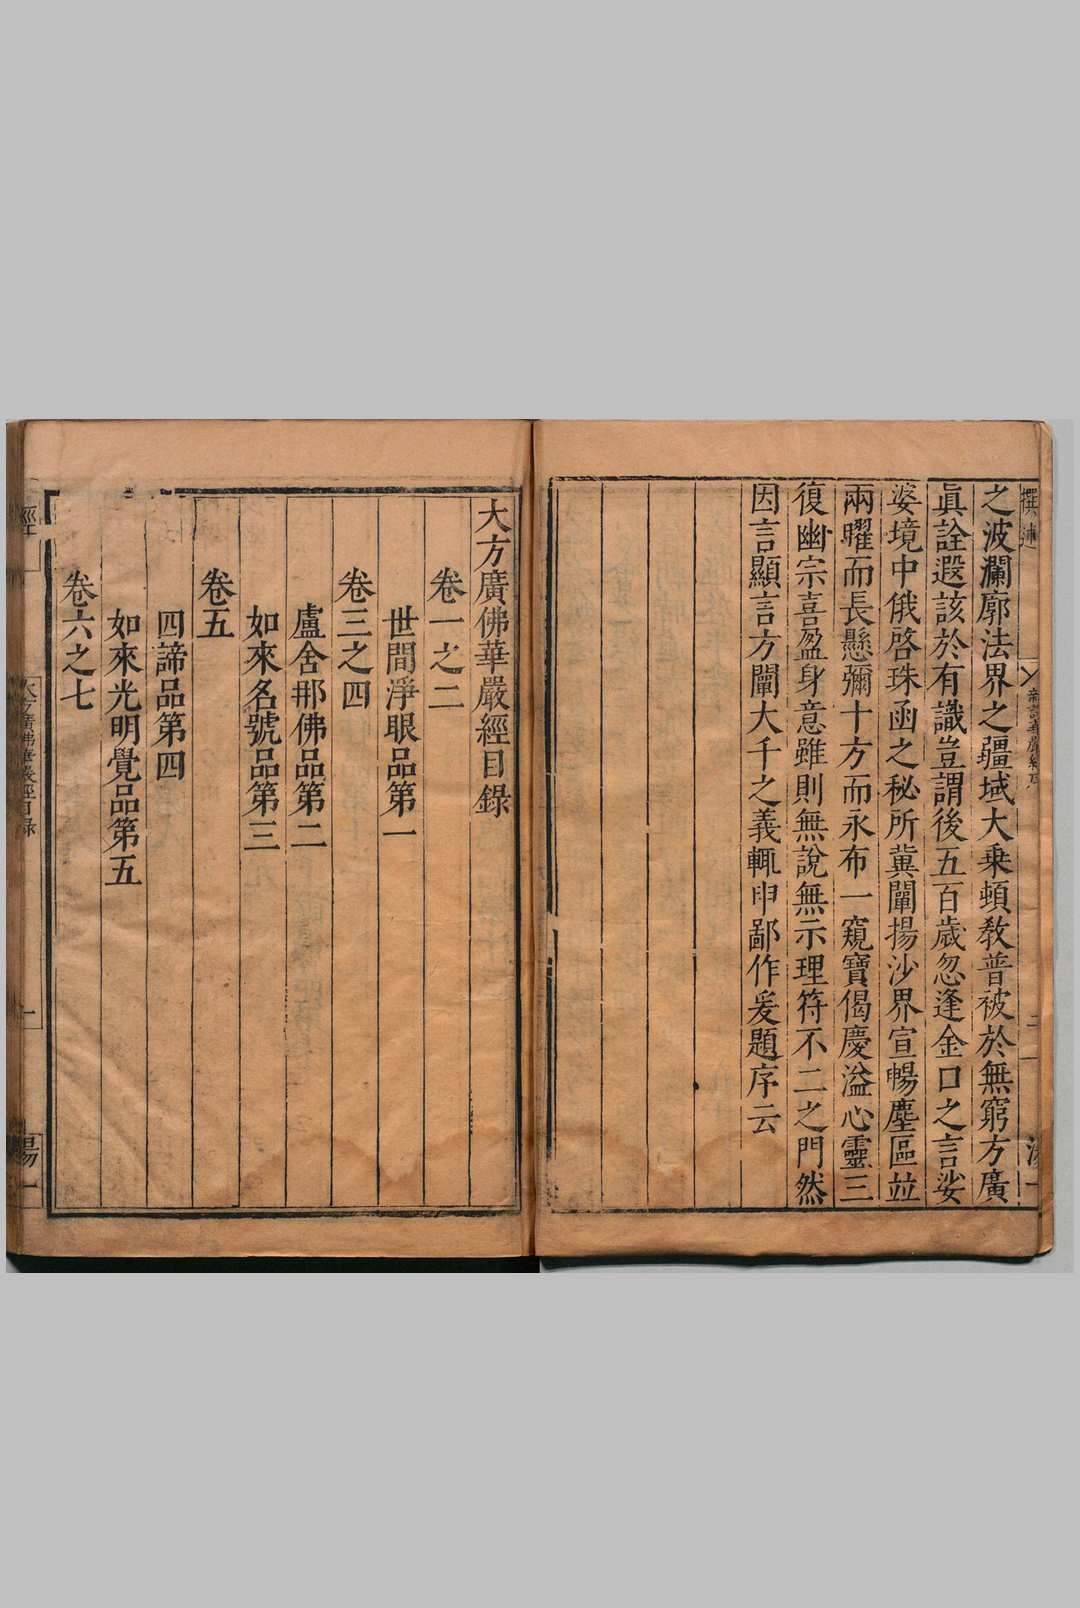 撰述
新譯華嚴經序
二
之波瀾廓法界之疆域大乗頓敎普被於無窮方廣
眞詮遐該於有識豈謂後五百歲忽逢金口之言娑
婆境中俄啓珠函之秘所冀闡揚沙界宣暢塵區並
兩曜而長懸彌十方而永布一窺寶偈慶溢心靈三
復幽宗喜盈身意雖則無說無示理符不二之門然
因言顯言方闡大千之義輒申鄙作爰題序云
大方廣佛華嚴經目錄
卷一之二
世間淨眼品第一
卷三之四
盧舍那佛品第二
如來名號品第三
卷五
四諦品第四
如來光明覺品第五
卷六之七
經
大方廣佛華嚴經目錄